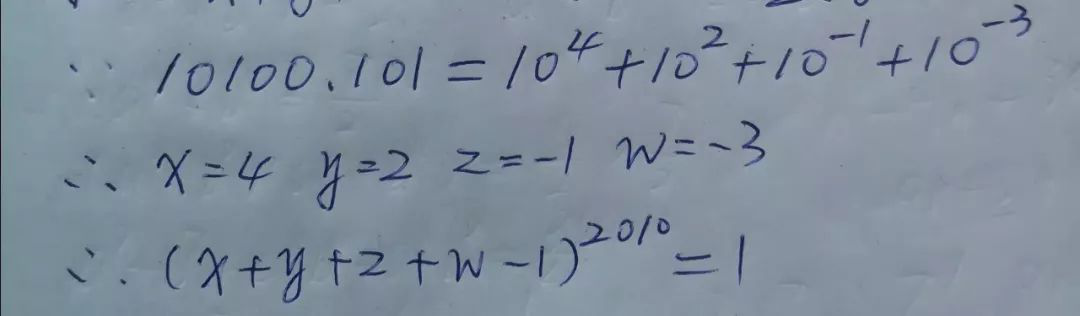 ∵ 10100.101 = 10⁴ + 10² + 10⁻¹ + 10⁻³
∴ x=4 y=2 z=-1 w=-3
∴ (x+y+z+w-1)²⁰¹⁰ = 1